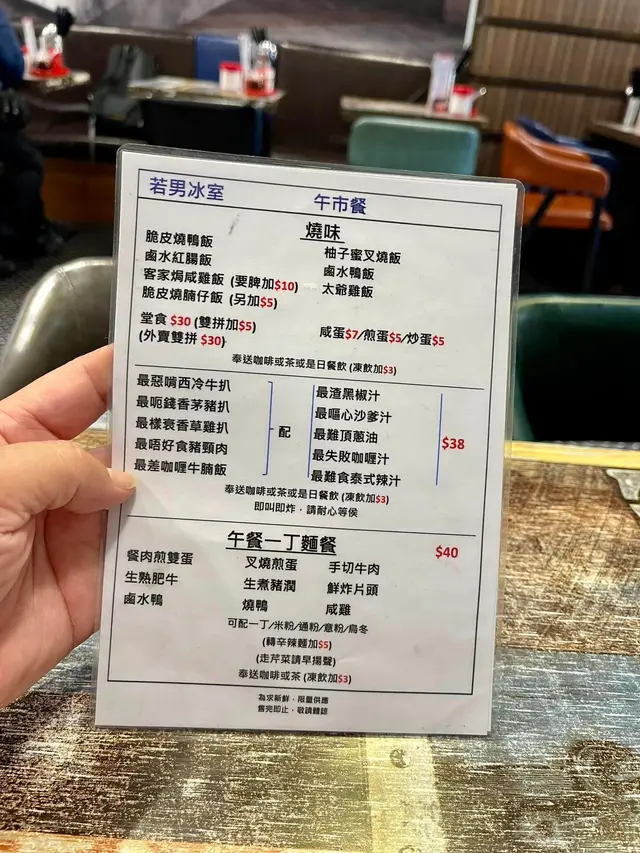 若男冰室 午市餐
燒味
脆皮燒鴨飯 柚子蜜叉燒飯
鹵水紅腸飯 鹵水鴨飯
客家焗咸雞飯 (要脾加$10) 太爺雞飯
脆皮燒腩仔飯 (另加$5)
堂食 $30 (雙拼加$5) 咸蛋$7/煎蛋$5/炒蛋$5
(外賣雙拼 $30)
奉送咖啡或茶或是日餐飲 (凍飲加$3)
最惡啃西冷牛扒 最渣黑椒汁
最呃錢香茅豬扒 最嘔心沙爹汁
最樣衰香草雞扒 配 最難頂蔥油 $38
最唔好食豬頸肉 最失敗咖喱汁
最差咖喱牛腩飯 最難食泰式辣汁
奉送咖啡或茶或是日餐飲 (凍飲加$3)
即叫即炸，請耐心等侯
午餐一丁麵餐 $40
餐肉煎雙蛋 叉燒煎蛋 手切牛肉
生熟肥牛 生煮豬潤 鮮炸片頭
鹵水鴨 燒鴨 咸雞
可配一丁/米粉/通粉/意粉/烏冬
(轉辛辣麵加$5)
(走芹菜請早揚聲)
奉送咖啡或茶 (凍飲加$3)
為求新鮮，限量供應
售完即止，敬請諒